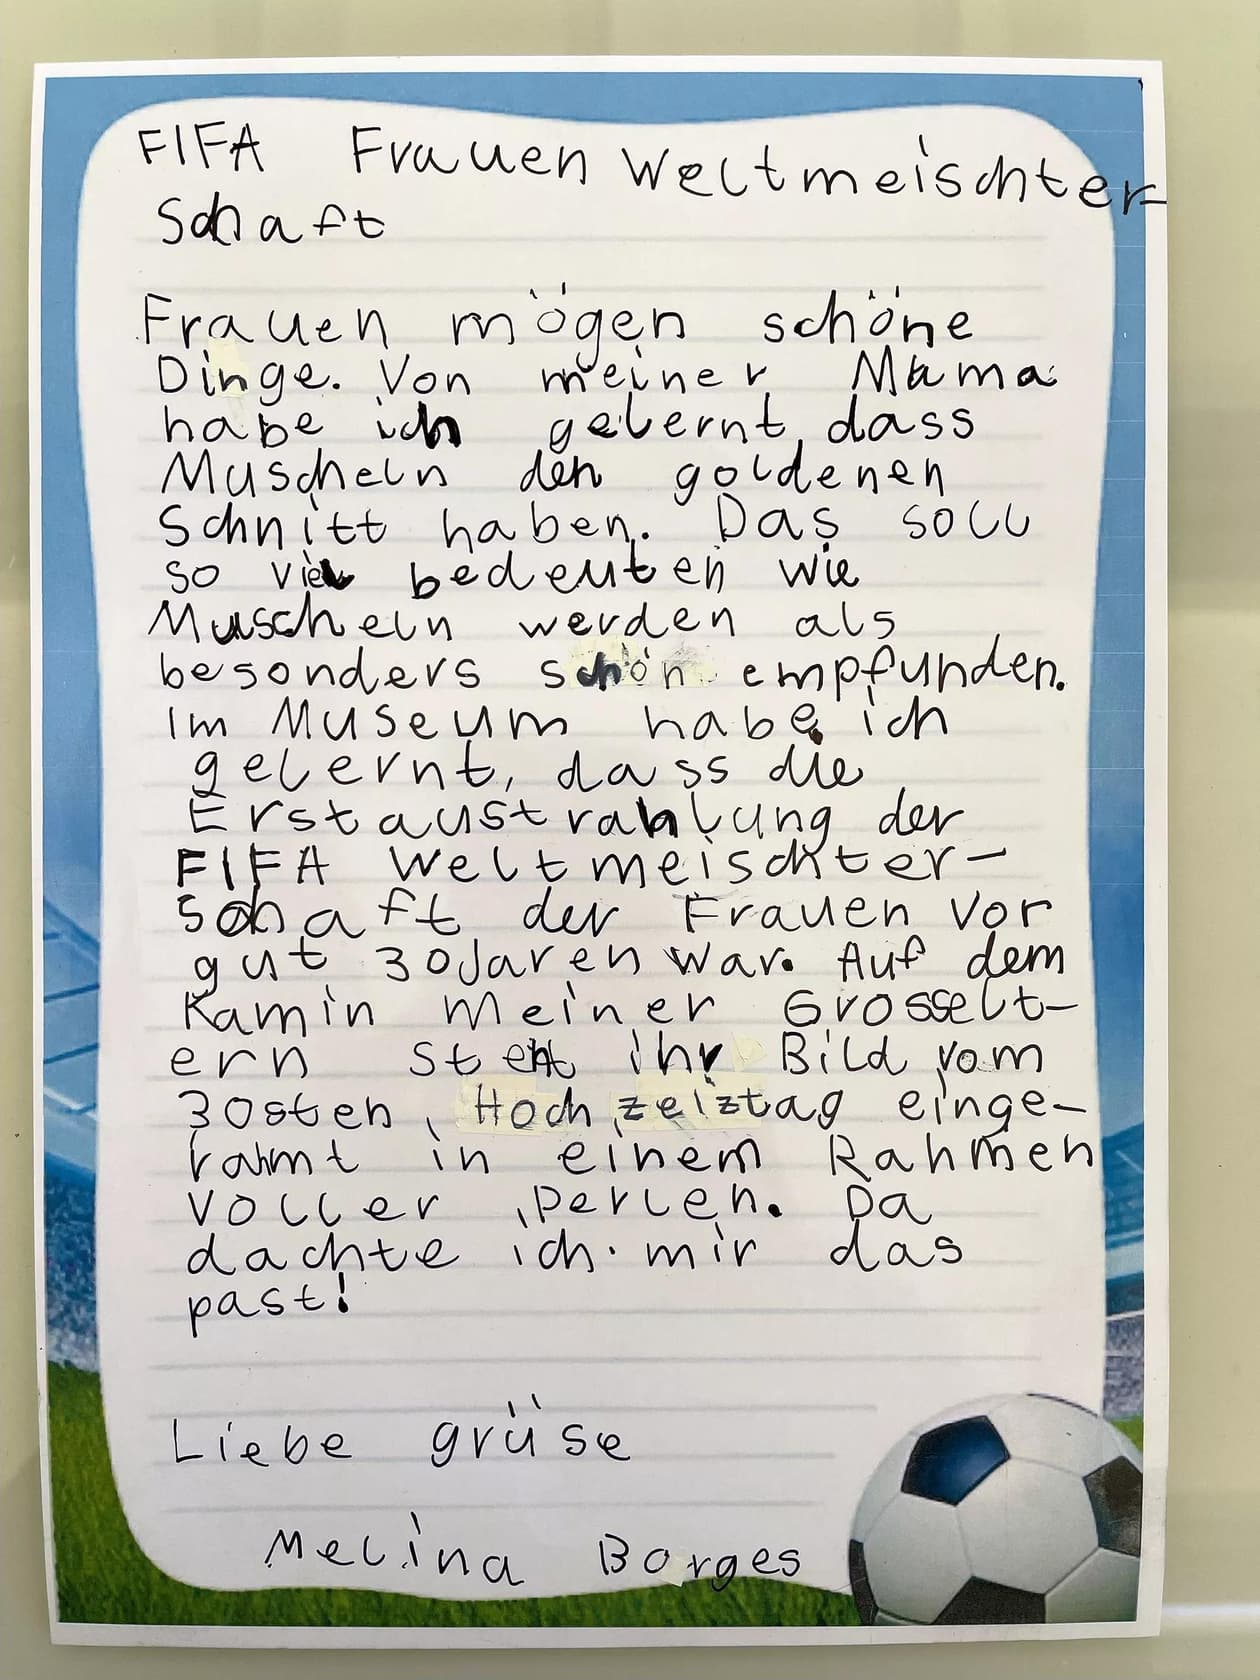 FIFA Frauen Weltmeischter-
schaft
Frauen mögen schöne
Dinge. Von meiner Mama
habe ich gelernt, dass
Muscheln den goldenen
Schnitt haben. Das soll
so viel bedeuten wie
Muscheln werden als
besonders schön empfunden.
Im Museum habe ich
gelernt, dass die
Erstaustrahlung der
FIFA Weltmeischter-
schaft der Frauen vor
gut 30 Jaren war. Auf dem
Kamin meiner Grosselt-
ern steht ihr Bild vom
30sten Hochzeiztag einge-
rahmt in einem Rahmen
voller perlen. Da
dachte ich mir das
past!
Liebe grüse
Melina Borges